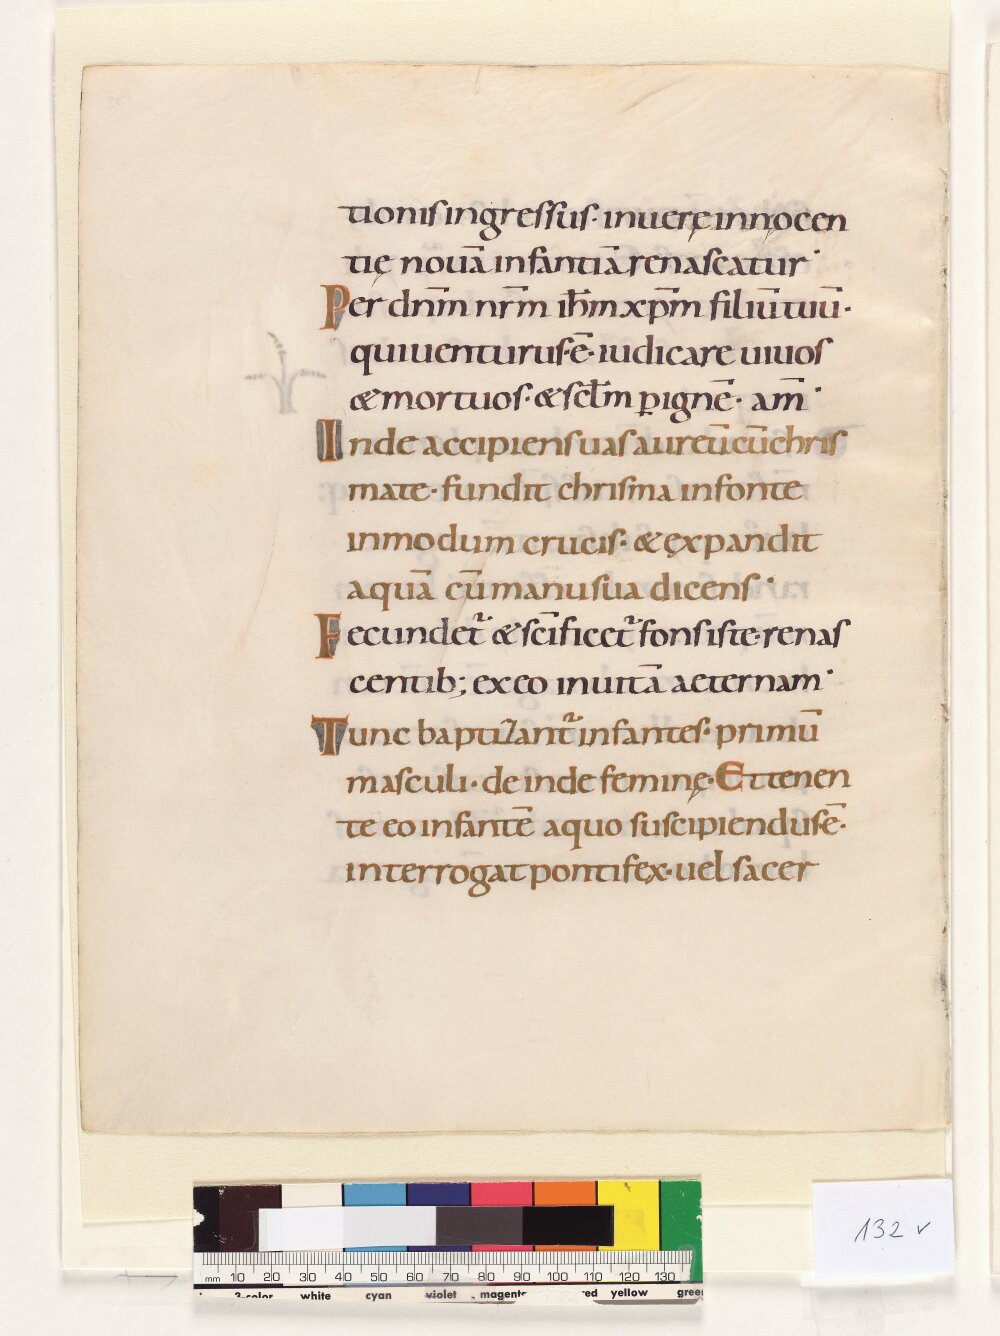 tionis ingressus· in uerę innocen
tię nouā infantiā renascatur·
Per dn̄m nr̄m ih̄m xp̄m filiū tuū·
qui uenturus ē· iudicare uiuos
& mortuos· & sc̄lm p̱ ignē· am̄·
Inde accipiens uas aureū cū chris
mate· fundit chrisma in fonte
in modum crucis· & ęxpandit
aquā cū manu sua dicens·
Fecundet᷑ & sc̄ificet᷑ fons iste· renas
centib; ex eo in uitā aeternam·
Tunc baptizant᷑ infantes· primū
masculi· de inde feminę· Et tenen
te eo infantē a quo suscipiendus ē·
interrogat pontifex· uel sacer
132 v
mm 10 20 30 40 50 60 70 80 90 100 110 120 130
3-color white cyan violet magenta red yellow green